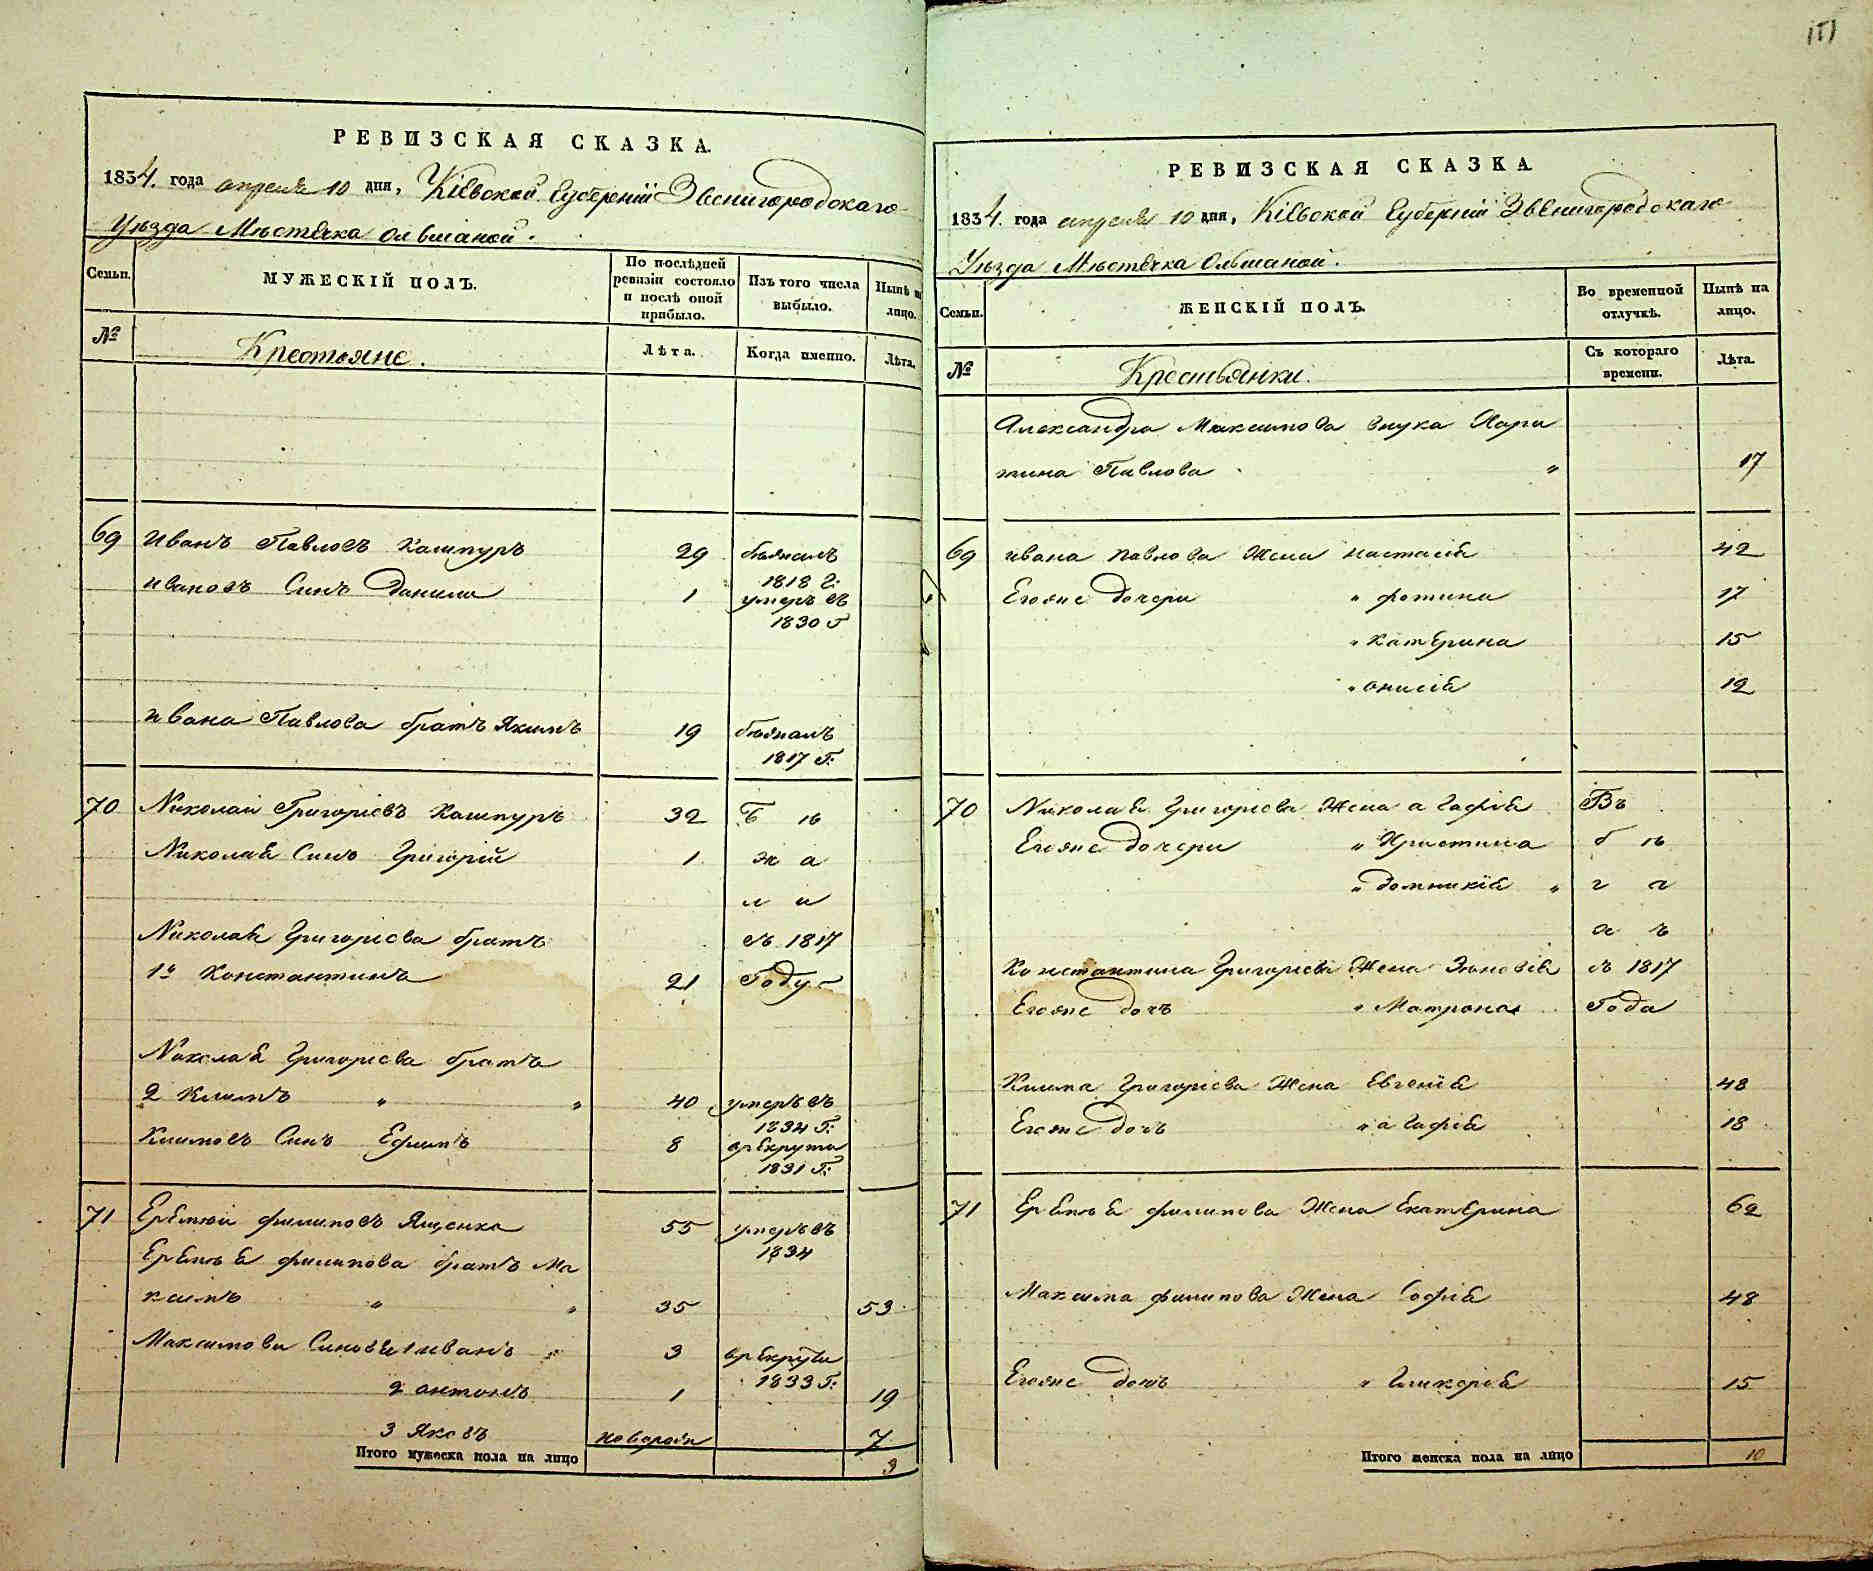 РЕВИЗСКАЯ СКАЗКА.
1834. года апреля 10 дня, Кіевской Губерніи Звенигородскаго
Уезда Мѣстечка Ольшаной.
Семьи. МУЖЕСКІЙ ПОЛЪ. По послѣдней ревизіи состояло и послѣ оной прибыло. Изъ того числа выбыло. Нынѣ на лицо.
№ Крестьяне. Лѣта. Когда именно. Лѣта.
69 Иванъ Павловъ Кашпуръ 29 бѣжалъ
1818 г.
Ивановъ Синъ Данило 1 умеръ въ
1830 Г
Ивана Павлова братъ Якимъ 19 бѣжалъ
1817 Г.
70 Николай Григоріевъ Кашпуръ 32 Б ѣ
Николая Синъ Григорій 1 ж а
л и
Николая Григоріева братъ въ 1817
1й Константинъ 21 Году
Николая Григоріева братъ
2 Климъ " " 40 умеръ въ
1834 Г.
Климовъ Синъ Ефимъ 8 врекрути
1831 Г.
71 Еремѣй филиповъ Ященка 55 умеръ въ
1834
Еремѣя филипова братъ Ма
ксимъ " " 35 53
Максимови Синовья 1 иванъ 3 врекрути
1833 Г.
2 антонъ 1 19
3 Яковъ новорожд 7
Итого мужеска пола на лицо 3
151
РЕВИЗСКАЯ СКАЗКА.
1834. года апреля 10 дня, Кіевской Губерніи Звенигородскаго
Уезда Мѣстечка Ольшаной.
Семьи. ЖЕНСКІЙ ПОЛЪ. Во временной отлучкѣ. Нынѣ на лицо.
№ Крестьянки. Съ котораго времени. Лѣта.
Александра Максимова внука Хари
тина Павлова " 17
69 ивана павлова Жена настасія 42
Егоже дочери " фотина 17
" Катерина 15
" онисія 12
70 Николая Григоріева Жена агафія Въ
Егоже дочери " Христина б ѣ
" Домникія " г а
х ъ
Константина Григоріева Жена Зѣновія съ 1817
Егоже дочь " Матрона Года
Клима Григоріева Жена Евгенія 48
Егоже дочь " агафія 18
71 Еремѣя филипова Жена Екатерина 62
Максима филипова Жена Софія 48
Егоже дочь " Гликерія 15
Итого женска пола на лицо 10